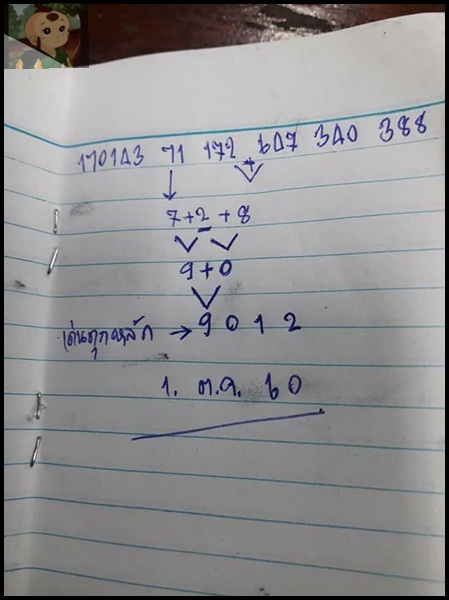 170143 71 172 647 340 388
+
↓
7+2+8
9+0
เด่นทุกหลัก → 9 0 1 2
1. ต.ค. 60